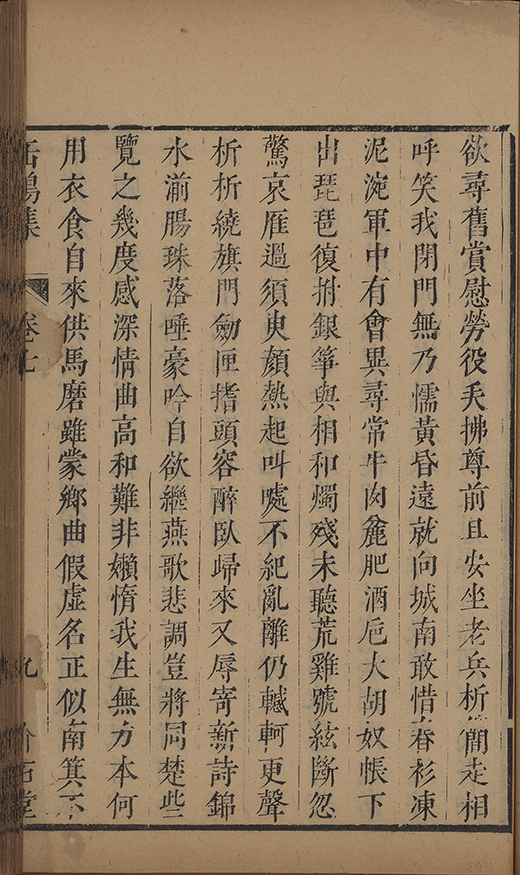 欲尋舊賞慰勞役夭拂尊前且安坐老兵析簡走相
呼笑我閉門無乃懦黃昏遠就向城南敢惜春衫凍
泥涴軍中有會異尋常牛肉麄肥酒巵大胡奴帳下
出琵琶復拊銀箏與相和燭殘未聽荒雞號絃斷忽
驚哀雁過須臾顏熱起叫噓不紀亂離仍轗軻更聲
析析繞旗門劒匣揩頭容醉臥歸來又辱寄新詩錦
水湔腸珠落唾豪吟自欲繼燕歌悲調豈將同楚些
覽之幾度感深情曲高和難非嬾惰我生無方本何
用衣食自來供馬磨雖蒙鄉曲假虛名正似南箕不
缶鳴集 卷七 九